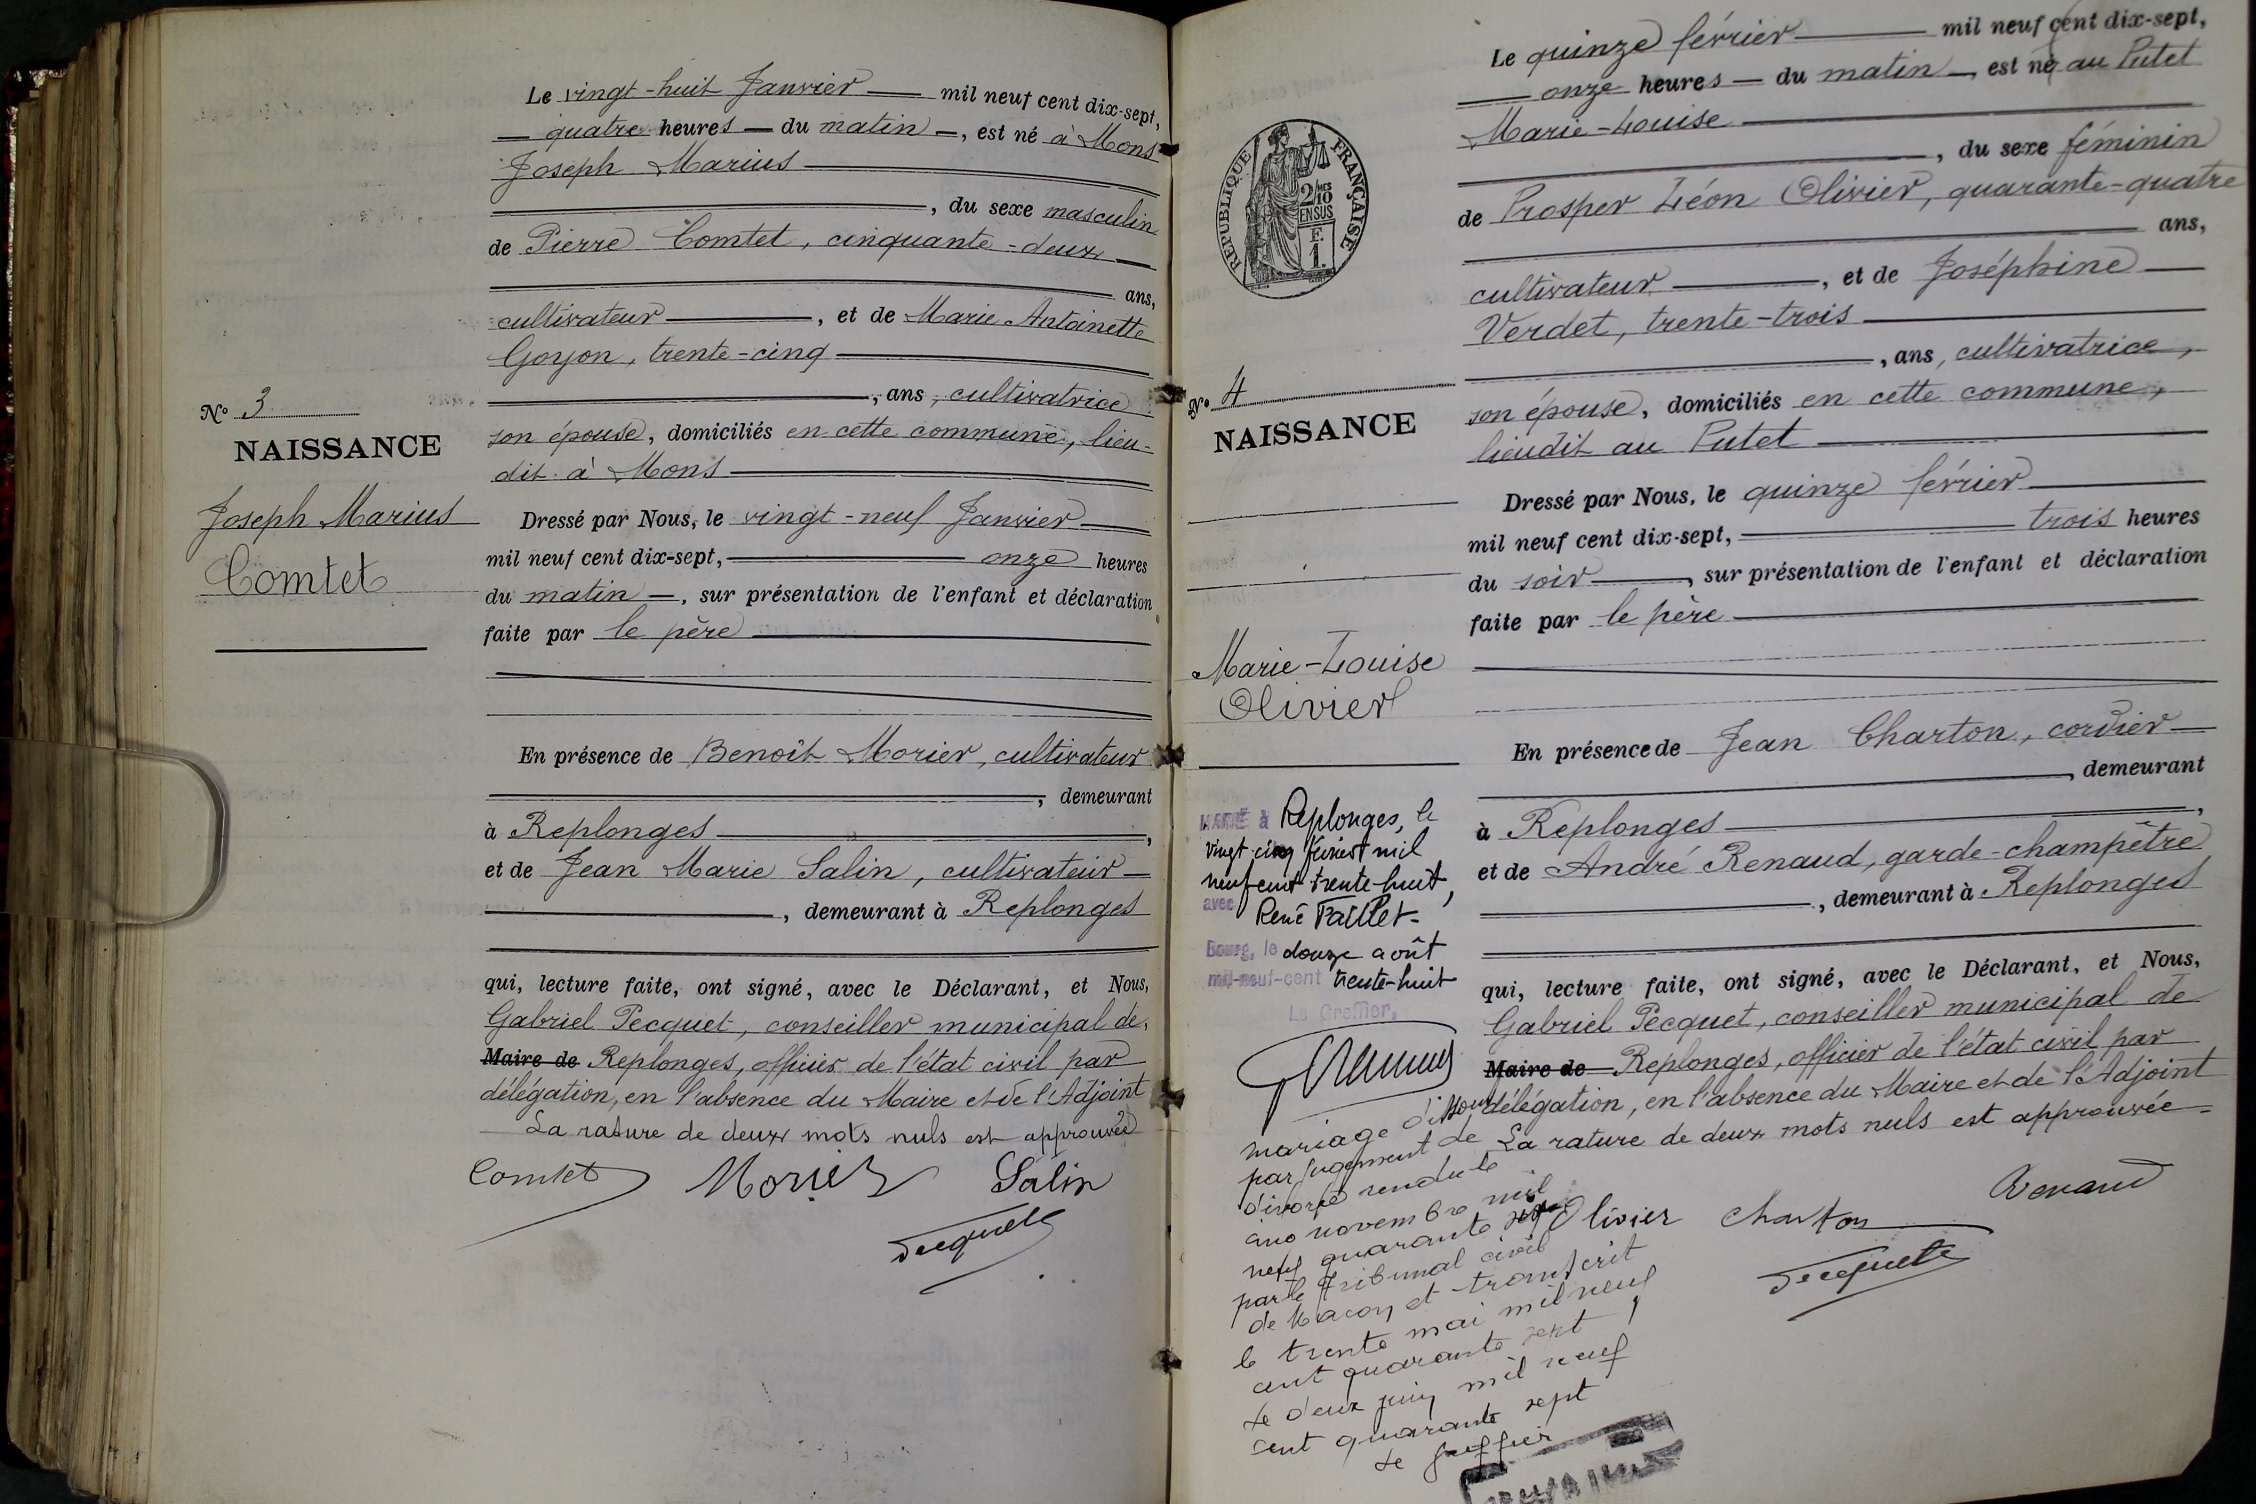 Le vingt-huit Janvier mil neuf cent dix-sept,
quatre heures du matin, est né à Mons
Joseph Marius
, du sexe masculin
de Pierre Comtet, cinquante-deux
ans,
cultivateur, et de Marie Antoinette
Goyon, trente-cinq
, ans, cultivatrice
son épouse, domiciliés en cette commune, lieu-
dit à Mons
Nº 3
NAISSANCE
Joseph Marius
Comtet
Dressé par Nous, le vingt-neuf Janvier
mil neuf cent dix-sept, onze heures
du matin, sur présentation de l'enfant et déclaration
faite par le père
En présence de Benoît Morier, cultivateur
, demeurant
à Replonges,
et de Jean Marie Salin, cultivateur
, demeurant à Replonges
qui, lecture faite, ont signé, avec le Déclarant, et Nous,
Gabriel Pecquet, conseiller municipal de
Maire de Replonges, officier de l'état civil par
délégation, en l'absence du Maire et de l'Adjoint
La rature de deux mots nuls est approuvée
Comtet Morier Salin
Pecquet
Le quinze février mil neuf cent dix-sept,
onze heures du matin, est né au Putet
Marie-Louise
, du sexe féminin
de Prosper Léon Olivier, quarante-quatre
ans,
cultivateur, et de Joséphine
Verdet, trente-trois
, ans, cultivatrice,
son épouse, domiciliés en cette commune,
lieudit au Putet
RÉPUBLIQUE FRANÇAISE
2/10MES
EN SUS
E.
1.
Nº 4
NAISSANCE
Marie-Louise
Olivier
Dressé par Nous, le quinze février
mil neuf cent dix-sept, trois heures
du soir, sur présentation de l'enfant et déclaration
faite par le père
En présence de Jean Charton, cordier
, demeurant
à Replonges,
et de André Renaud, garde-champêtre
, demeurant à Replonges
qui, lecture faite, ont signé, avec le Déclarant, et Nous,
Gabriel Pecquet, conseiller municipal de
Maire de Replonges, officier de l'état civil par
délégation, en l'absence du Maire et de l'Adjoint
La rature de deux mots nuls est approuvée
Olivier Charton Renaud
Pecquet
MARIÉ à Replonges, le
vingt cinq février mil
neuf cent trente-huit,
avec René Faillet.
Bourg, le douze août
mil-neuf-cent trente-huit
Le Greffier,
mariage dissous
par jugement de
divorce rendu le
cinq novembre mil
neuf quarante six
par le Tribunal civil
de Macon et transcrit
le trente mai mil neuf
cent quarante sept
Le deux juin mil neuf
cent quarante sept
Le greffier